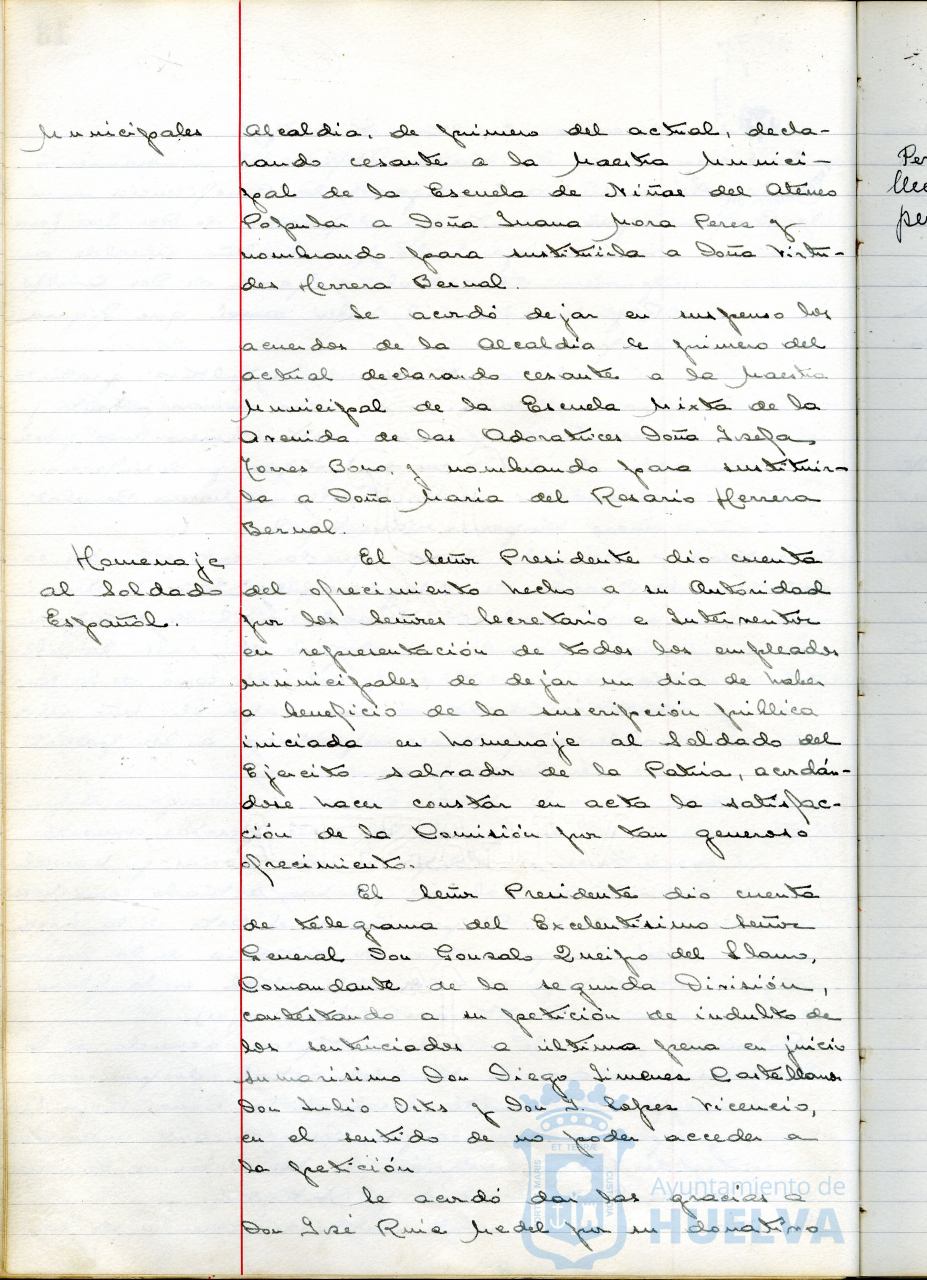 Municipales
Alcaldia, de primero del actual, decla-
rando cesante a la Maestra Munici-
pal de la Escuela de Niñas del Ateneo
Popular a Doña Juana Mora Peres y
nombrando para sustituirla a Doña Virtu-
des Herrera Bernal.
Se acordó dejar en suspenso los
acuerdos de la Alcaldia de primero del
actual declarando cesante a la Maestra
Municipal de la Escuela Mixta de la
Avenida de las Adoratrices Doña Josefa
Torres Bono, y nombrando para sustituir-
la a Doña Maria del Rosario Herrera
Bernal.
Homenaje
al Soldado
Español.
El Señor Presidente dio cuenta
del ofrecimiento hecho a su Autoridad
por los Señores Secretario e Interventor
en representación de todos los empleados
municipales de dejar un dia de haber
a beneficio de la suscripción pública
iniciada en homenaje al Soldado del
Ejercito salvador de la Patria, acordán-
dose hacer constar en acta la satisfac-
ción de la Comisión por tan generoso
ofrecimiento.
El Señor Presidente dio cuenta
de telegrama del Excelentisimo Señor
General Don Gonzalo Queipo del Llano,
Comandante de la segunda División,
contestando a su petición de indulto de
los sentenciados a última pena en juicio
sumarisimo Don Diego Jimenes Castellano
Don Julio Orts y Don J. Lopes Vicencio,
en el sentido de no poder acceder a
la petición
Se acordó dar las gracias a
Don José Ruiz Medel por su donativo
Per
pe
PORTUS MARIS ET TERRÆ CUSTODIA
Ayuntamiento de
HUELVA